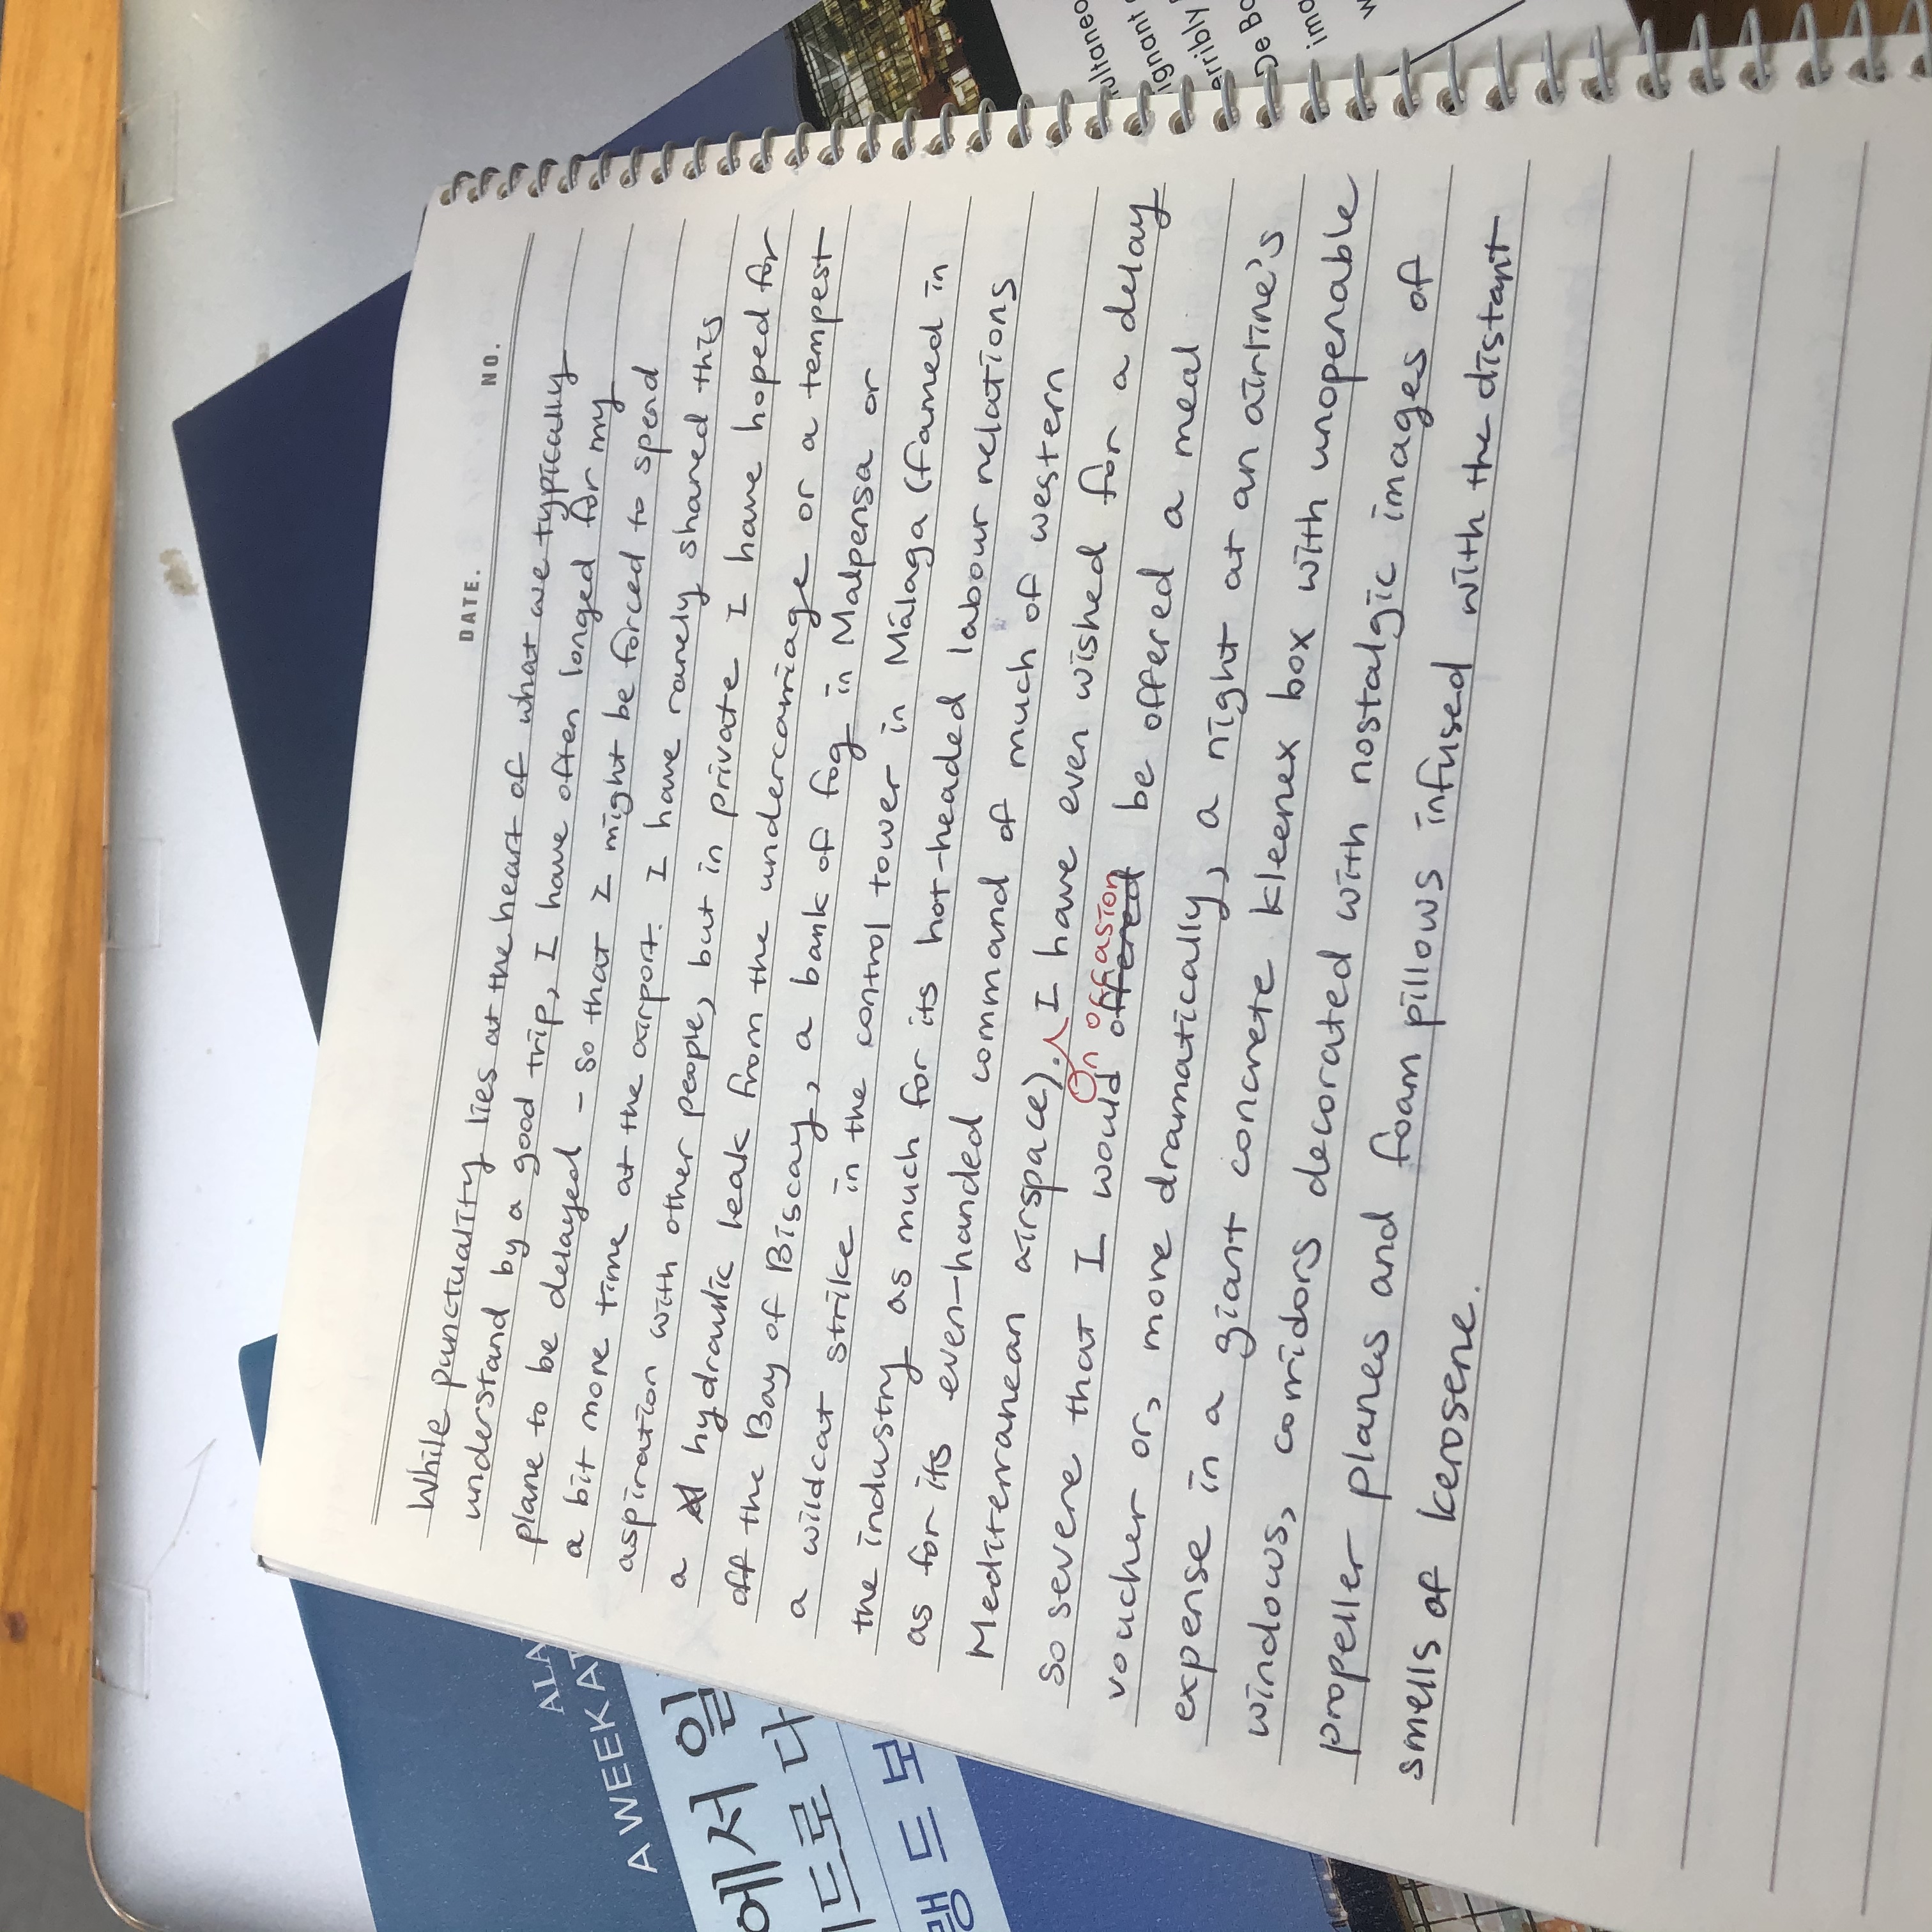 DATE. NO.
While punctuality lies at the heart of what we typically
understand by a good trip, I have often longed for my
plane to be delayed - so that I might be forced to spend
a bit more time at the airport. I have rarely shared this
aspiration with other people, but in private I have hoped for
a hydraulic leak from the undercarriage or a tempest
off the Bay of Biscay, a bank of fog in Malpensa or
a wildcat strike in the control tower in Málaga (famed in
the industry as much for its hot-headed labour relations
as for its even-handed command of much of western
Mediterranean airspace). I have even wished for a delay
On offasion
so severe that I would offered be offered a meal
voucher or, more dramatically, a night at an airline's
expense in a giant concrete kleenex box with unopenable
windows, corridors decorated with nostalgic images of
propeller planes and foam pillows infused with the distant
smells of kerosene.
A WEEK AT
에서 일
드로 다
랭 드 보
ignant
De Bo